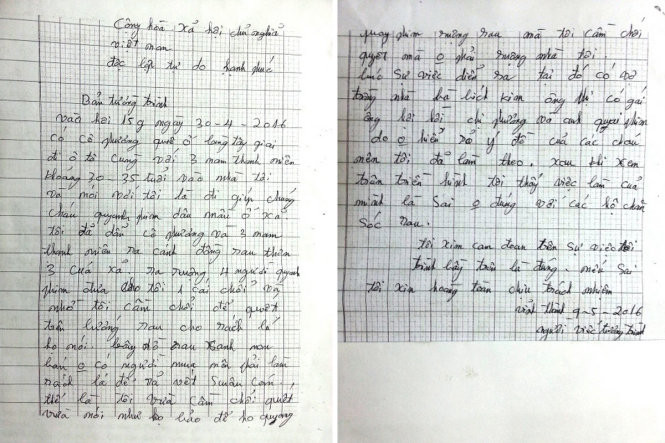 Cộng hòa xã hội chủ nghĩa
việt nam
độc lập tự do hạnh phúc
Bản tường trình
vào hồi 15g ngày 30-4-2016
có cô phương quê ở làng tây giai
đi ô tô cùng với 3 nam thanh niên
khoang 30-35 tuổi vào nhà tôi
và nói với tôi là đi giúp chúng
cháu quyanh phim dau màu ở xã
tôi đã dẫn cô phương và 3 nam
thanh niên ra cánh đồng rau thôn
3 của xã ra ruộng 4 người đi quanh
phim đưa cho tôi 1 cái chổi và
nhờ tôi cầm chổi để quét
trên luống rau cho rách lá
họ nói rau xanh non
bán o có người mua nên phải làm
rách lá để rả vết suâu cắn,
thế là tôi vừa cầm chổi quét
vừa nói như họ bảo để họ quyang
quay phim ruộng rau mà tôi cầm chổi
quyét mà o phải ruộng nhà tôi.
lúc sự việc diễn ra tại đó có vợ
trồng nhà bà bích kian ông thi có gái
ông hỏi chị phương và anh quyai phim
do o hiểu rõ ý đồ của các cháu
nên tôi đã làm theo, xau khi xem
trên triền hình tôi thấy việc làm của
mình là sai o đúng với các hộ chăn
sóc rau.
tôi xin cam đoan trên sự việc tôi
trình bầy trên là đúng. nếu sai
tôi xin hoàng toàn chịu trách nhiệm
vĩnh thành 9-5-2016
người viết tường trình